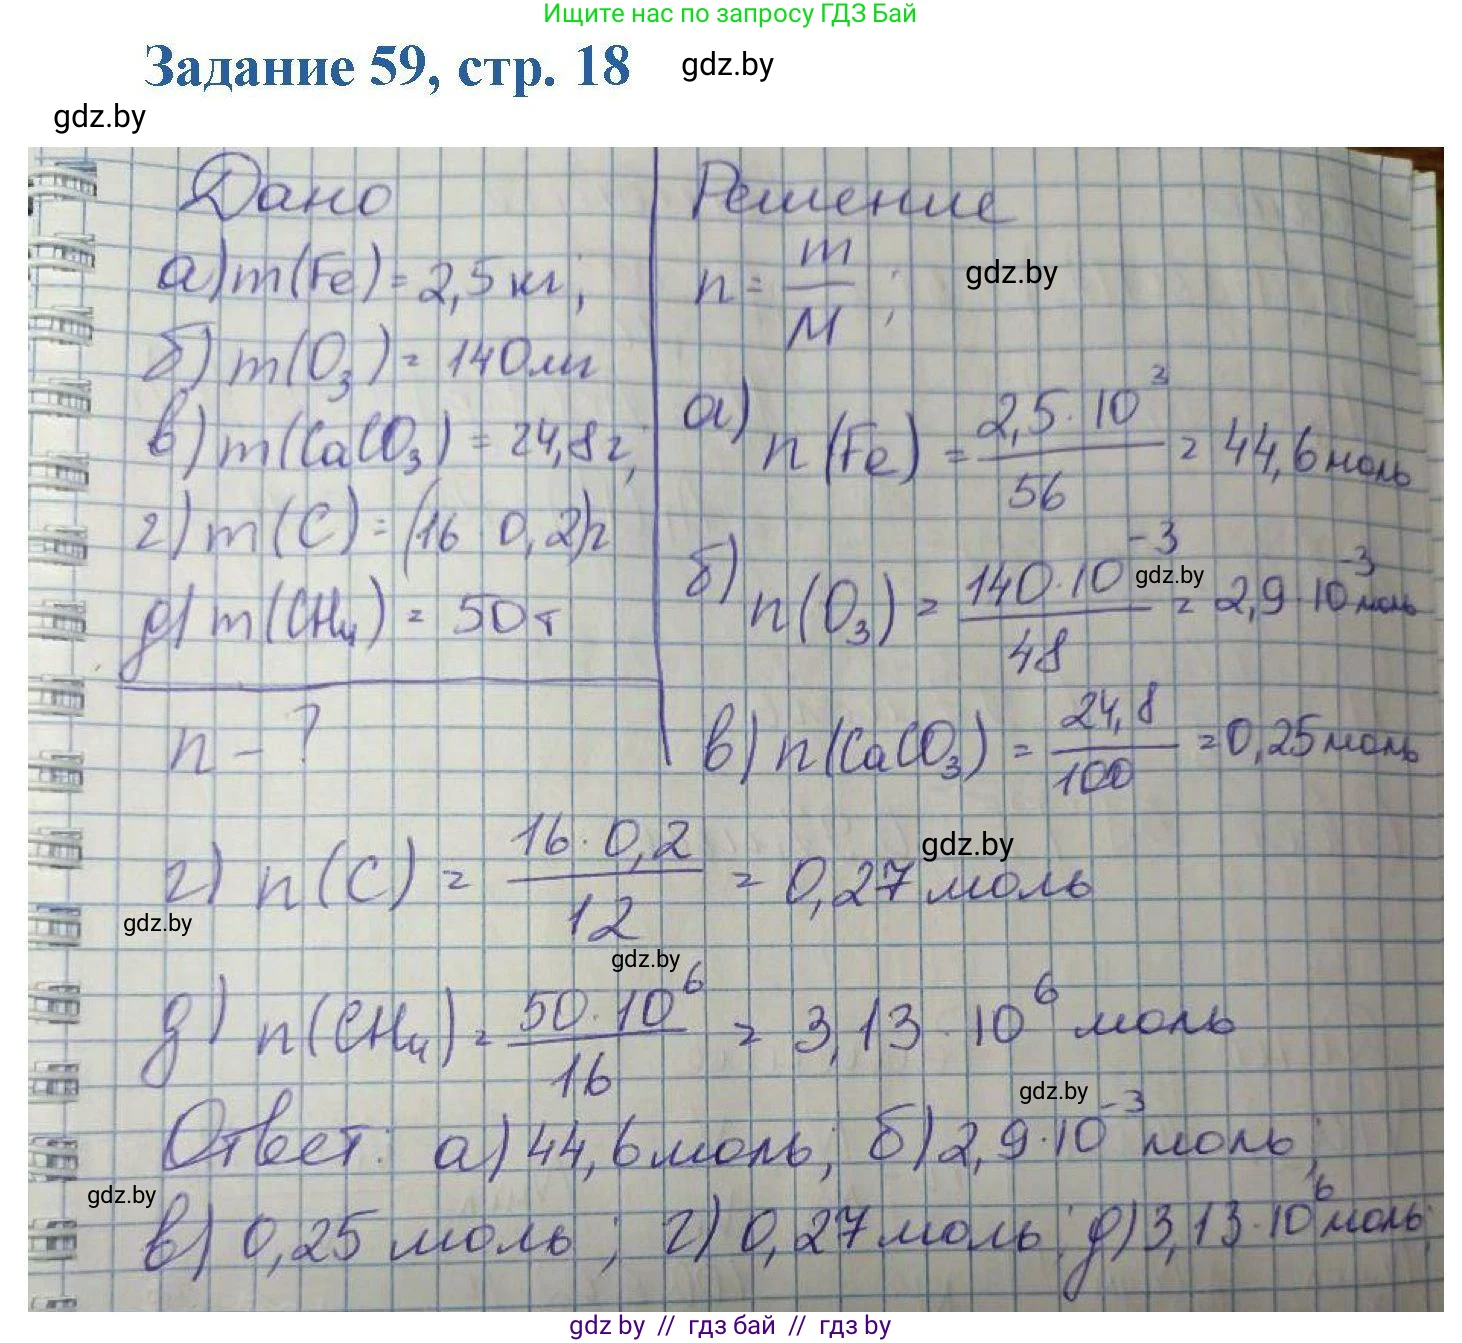 Ищите нас по запросу ГДЗ Бай
Задание 59, стр. 18 gdz.by
gdz.by
Дано
а) m(Fe) = 2,5 кг;
б) m(O₃) = 140 мг
в) m(CaCO₃) = 24,8 г;
г) m(C) = (16 0,2) г
д) m(CH₄) = 50 т
n - ?
Решение
n = m/M ; gdz.by
а) n(Fe) = 2,5 · 10³/56 = 44,6 моль
б) n(O₃) = 140 · 10⁻³/48 = 2,9 · 10⁻³ моль
gdz.by
в) n(CaCO₃) = 24,8/100 = 0,25 моль
г) n(C) = 16 · 0,2/12 = 0,27 моль
gdz.by
gdz.by
gdz.by
д) n(CH₄) = 50 · 10⁶/16 = 3,13 · 10⁶ моль
gdz.by
Ответ: а) 44,6 моль; б) 2,9 · 10⁻³ моль;
gdz.by
в) 0,25 моль; г) 0,27 моль; д) 3,13 · 10⁶ моль;
gdz.by // гдз бай // гдз by